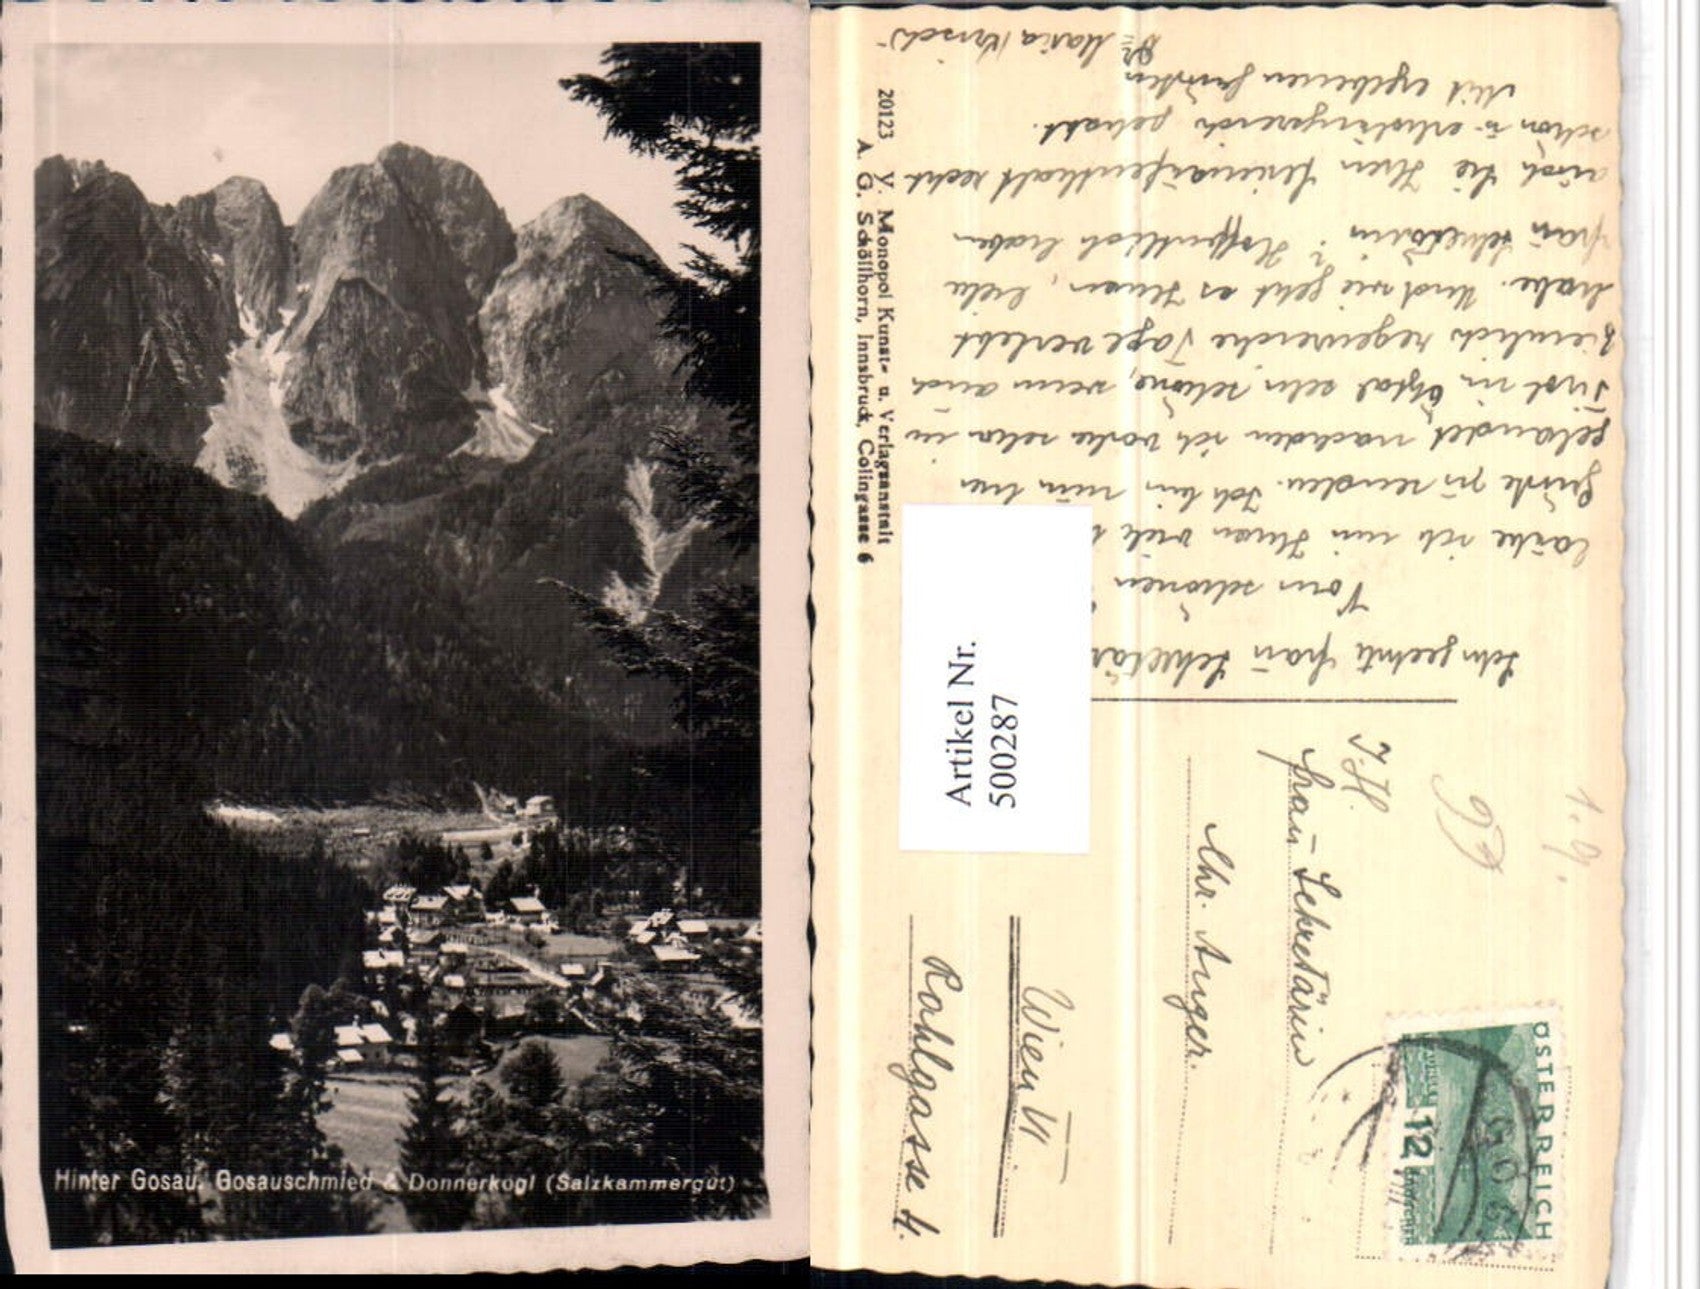 Hinter Gosau, Gosauschmied & Donnerkogl (Salzkammergut)
20123 V. Monopol Kunst- u. Verlagsanstalt
A. G. Schöllhorn, Innsbruck, Colingasse 6
Artikel Nr.
500287
Sehr geehrte Frau Sekretär
Vom schönen
ich nun Ihnen viele
Grüsse zu senden. Ich bin nun hier
gelandet nachdem ich vorher schon in
Tirol im Ötztal sehr schöne, wenn auch
ziemlich regenreiche Tage verlebt
habe. Und wie geht es Ihnen, liebe
Frau Sekretärin? Hoffentlich haben
auch Sie Ihren Ferienaufenthalt recht
schön u. erholungsreich gehabt.
Mit ergebenen Grüßen
Maria
1.9.
I. H.
Frau Sekretärin
Chr. Anger.
Wien VI
Rahlgasse 4.
ÖSTERREICH
12 GROSCHEN